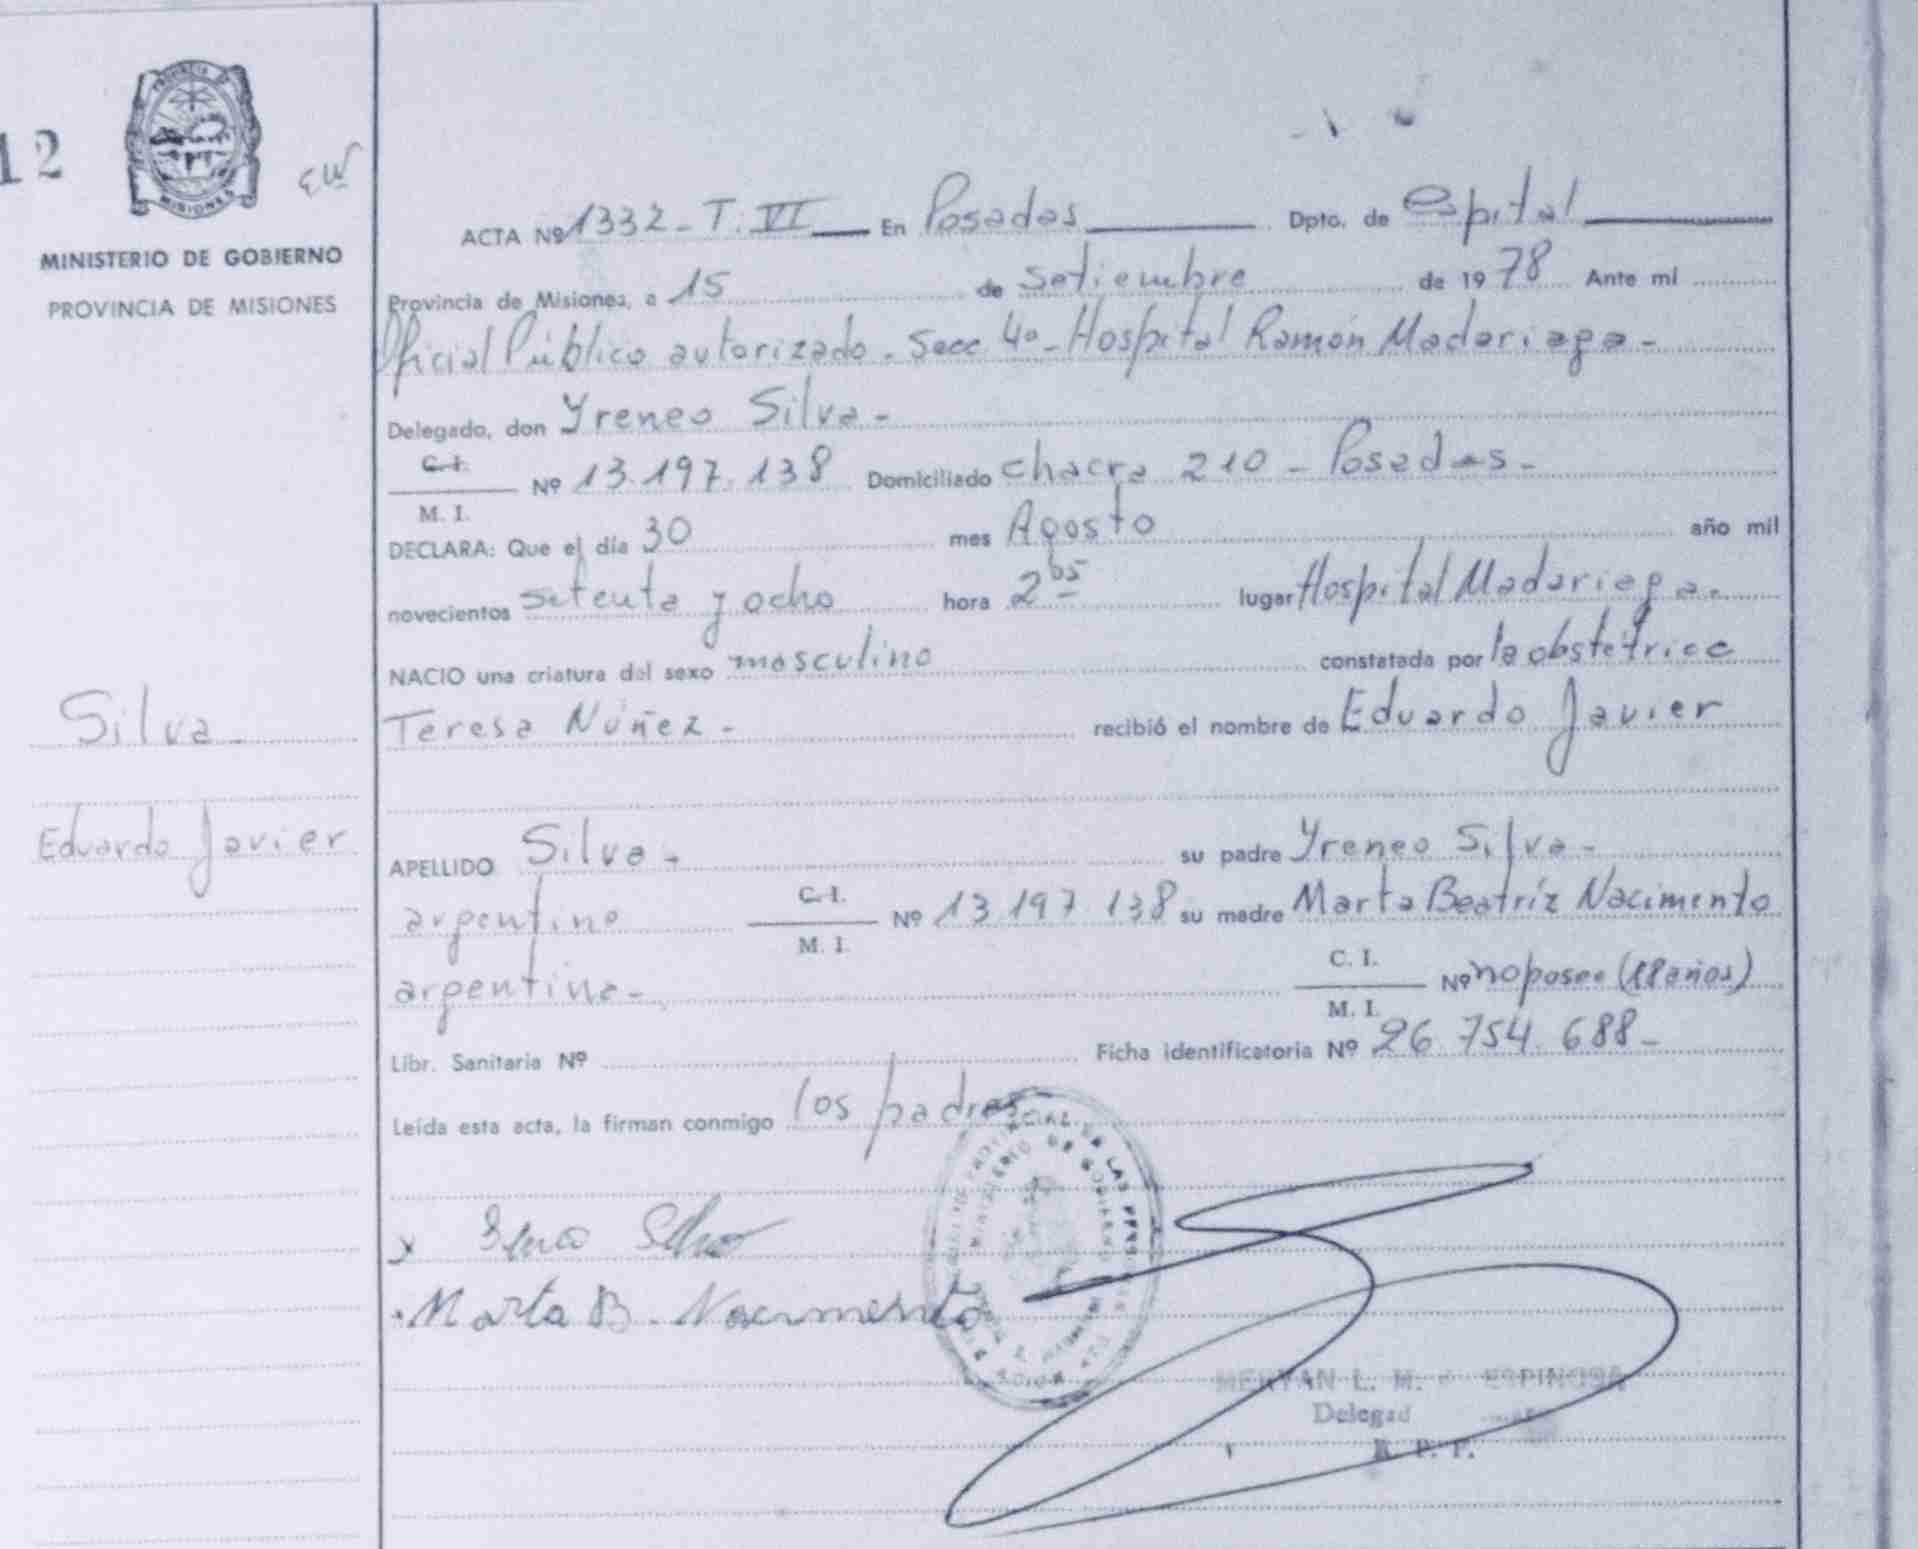 12
PROVINCIA DE
MISIONES
EW
MINISTERIO DE GOBIERNO
PROVINCIA DE MISIONES
Silva -
Eduardo Javier
ACTA Nº 1332 - T. VI En Posadas Dpto. de Cspital
Provincia de Misiones, a 15 de Setiembre de 1978 Ante mi
Oficial Público autorizado - Secc 4ª - Hospital Ramón Madariaga -
Delegado, don Yreneo Silva -
C. I.
Nº 13.197.138 Domiciliado chacra 210 - Posadas -
M. I.
DECLARA: Que el día 30 mes Agosto año mil
novecientos setenta y ocho hora 2 hs lugar Hospital Madariaga.
NACIO una criatura del sexo masculino constatada por la obstetrice
Teresa Núñez - recibió el nombre de Eduardo Javier
APELLIDO Silva - su padre Yreneo Silva -
C. I.
argentino Nº 13 197 138 su madre Marta Beatríz Nacimento
M. I.
C. I.
argentina - Nº no posee (18 años)
M. I.
Libr. Sanitaria Nº Ficha identificatoria Nº 26 754 688 -
Leída esta acta, la firman conmigo los padres
x Silva
Marta B. Nacimento
L. M. ESPINOSA
Delegad
R. P. P.